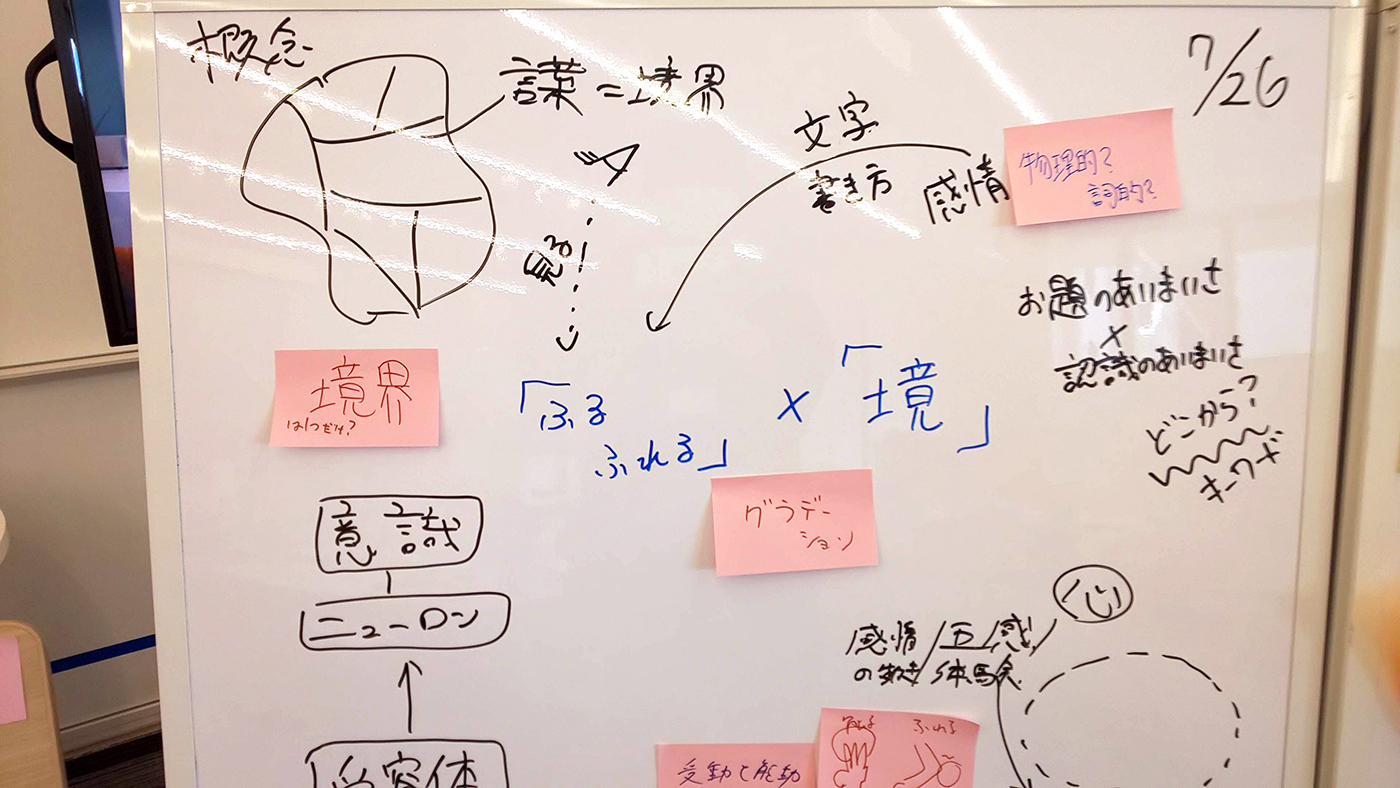 概念
言葉=境界
7/26
文字
書き方
感情
物理的?
詞的?
見る
お題のあいまいさ
×
認識のあいまいさ
どこから?
キーワード
境界
は1つだけ?
「ふる
ふれる」
×
「境」
グラデー
ション
意識
ニューロン
受容体
心
感情
五感
体験
受動と能動
ふれる